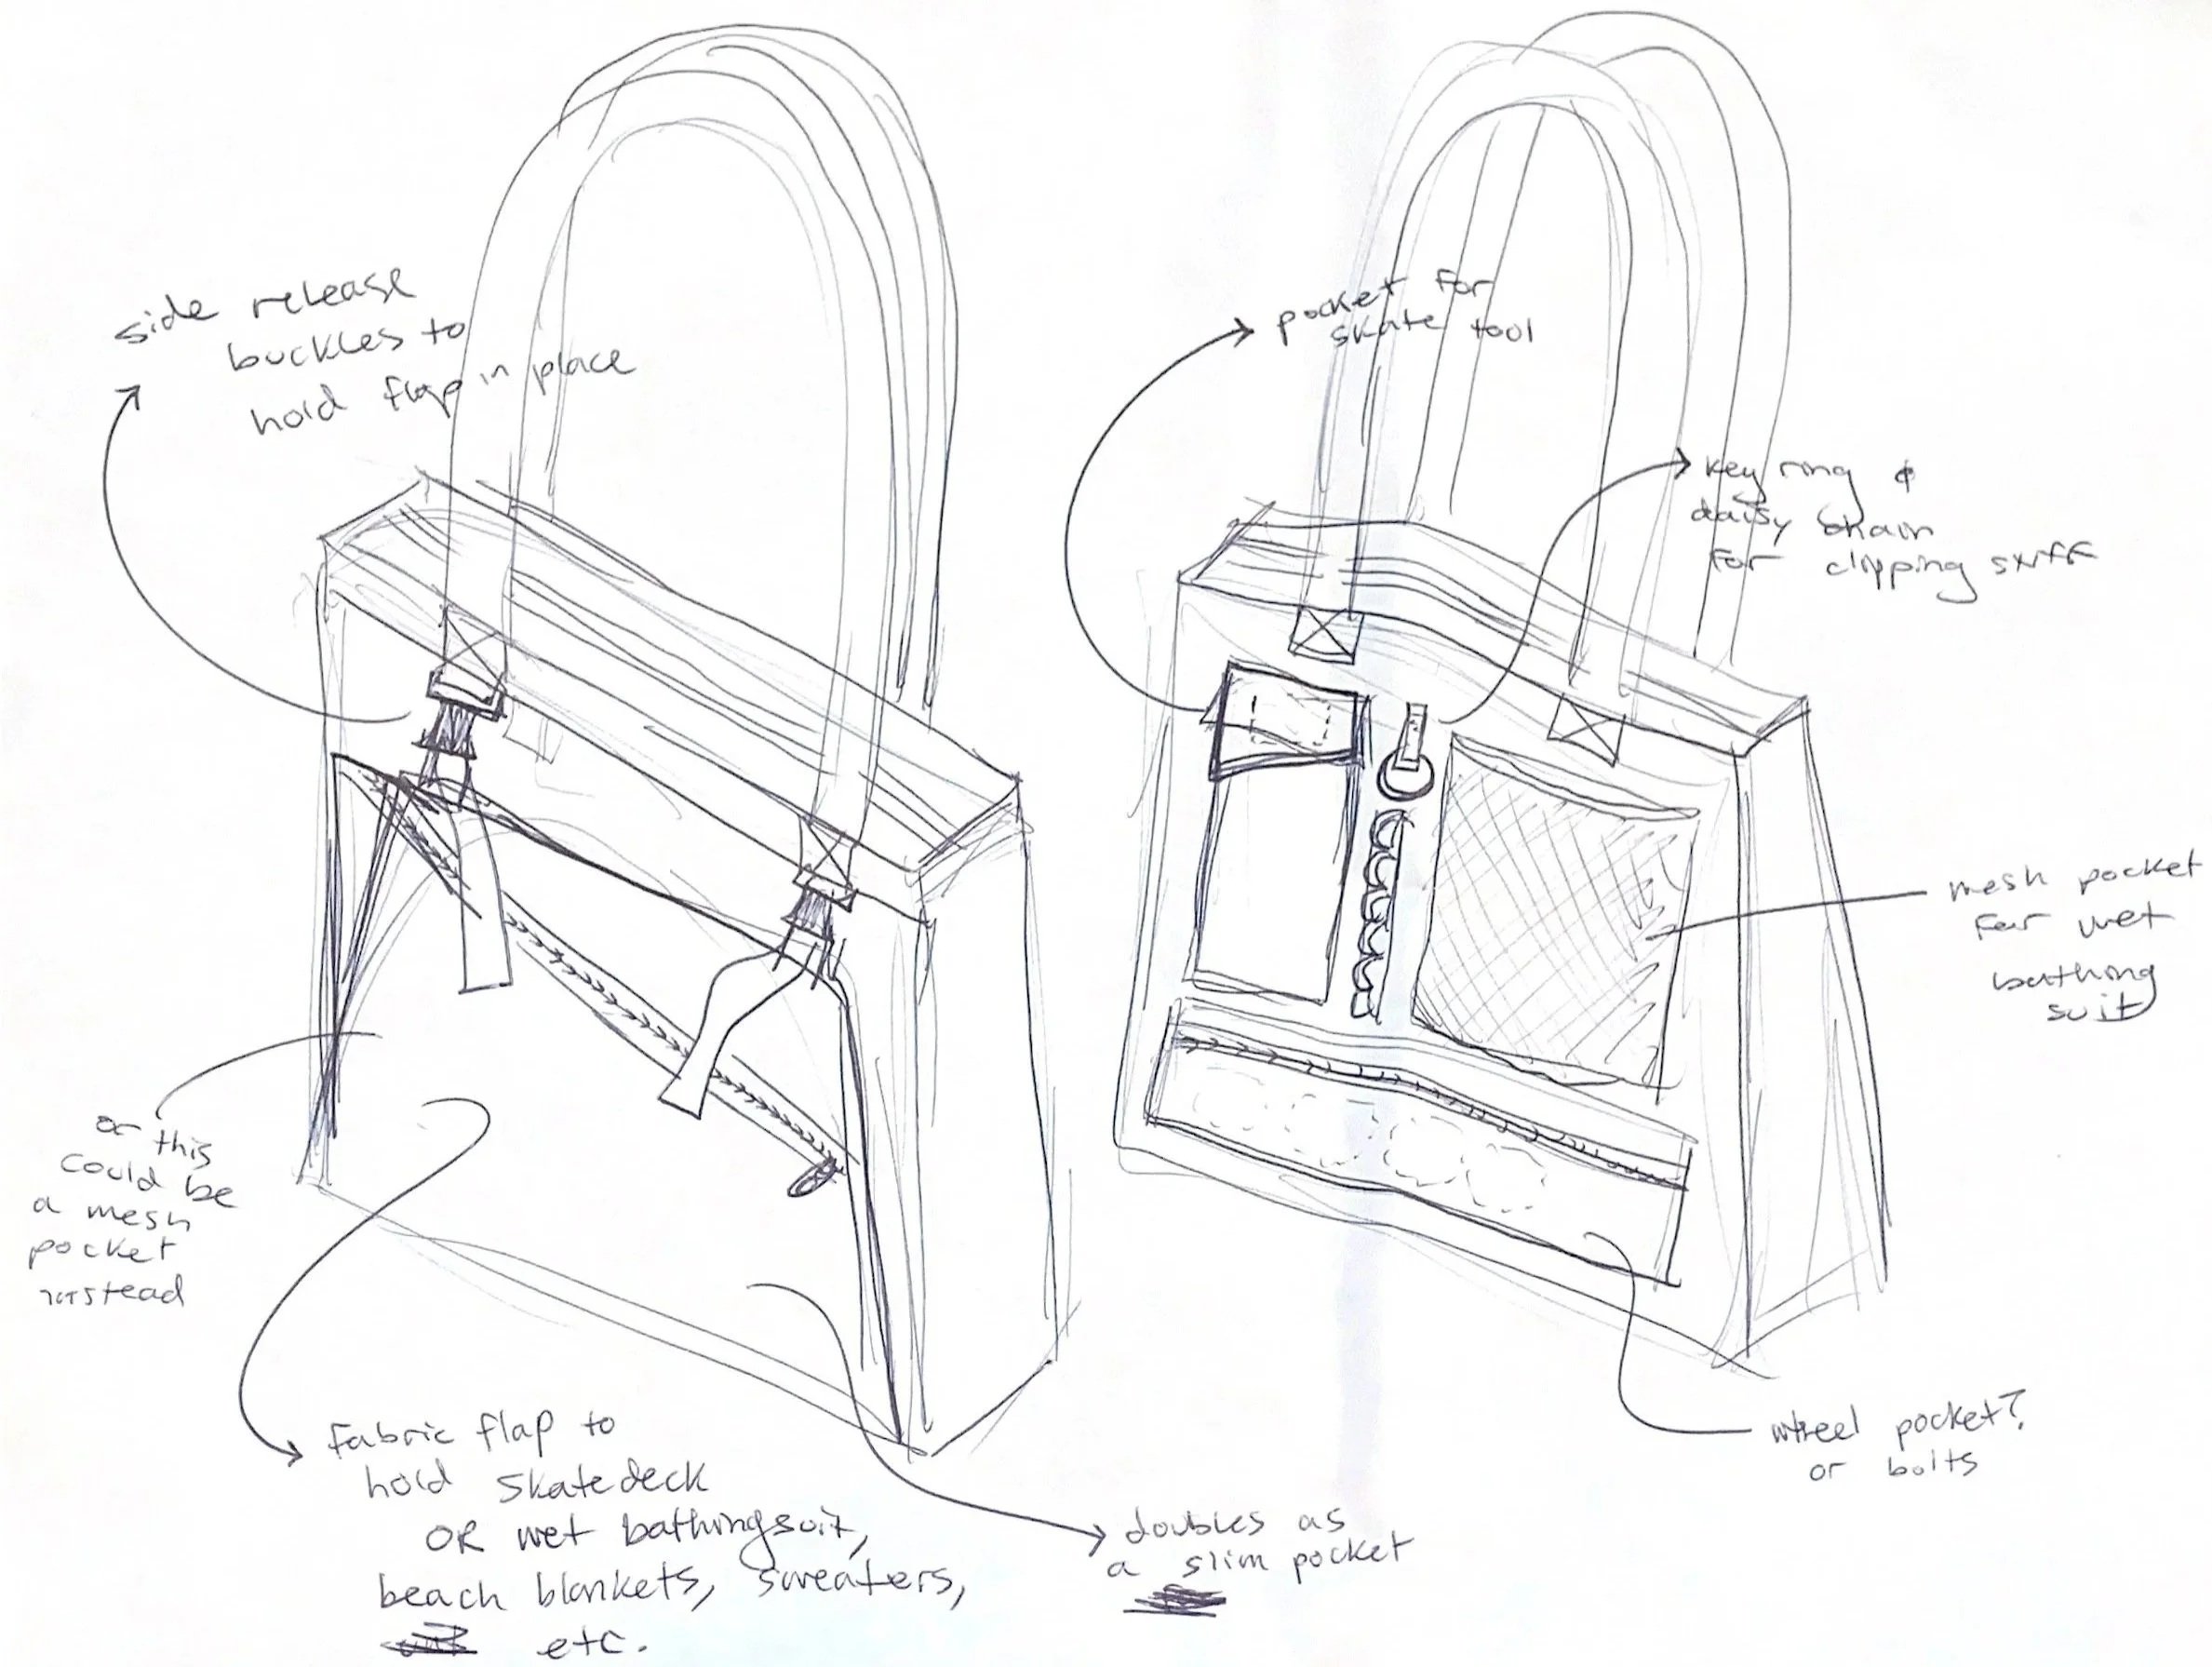 side release
buckles to
hold flap in place
or this
could be
a mesh
pocket
instead
fabric flap to
hold skatedeck
OR wet bathingsuit,
beach blankets, sweaters,
etc.
doubles as
a slim pocket
pocket for
skate tool
key ring &
daisy chain
for clipping stuff
mesh pocket
for wet
bathing
suit
wheel pocket?
or bolts